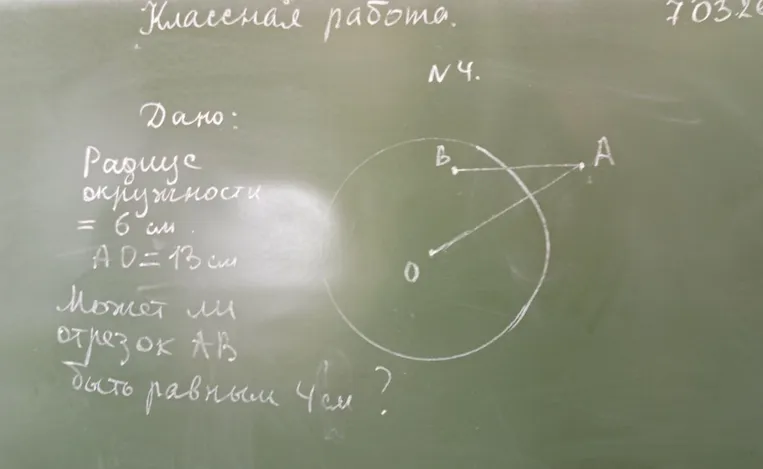 Классная работа.
7 03 26
N 4.
Дано:
Радиус
окружности
= 6 см.
AO = 13 см
Может ли
отрезок AB
быть равным 4 см ?
B
A
O